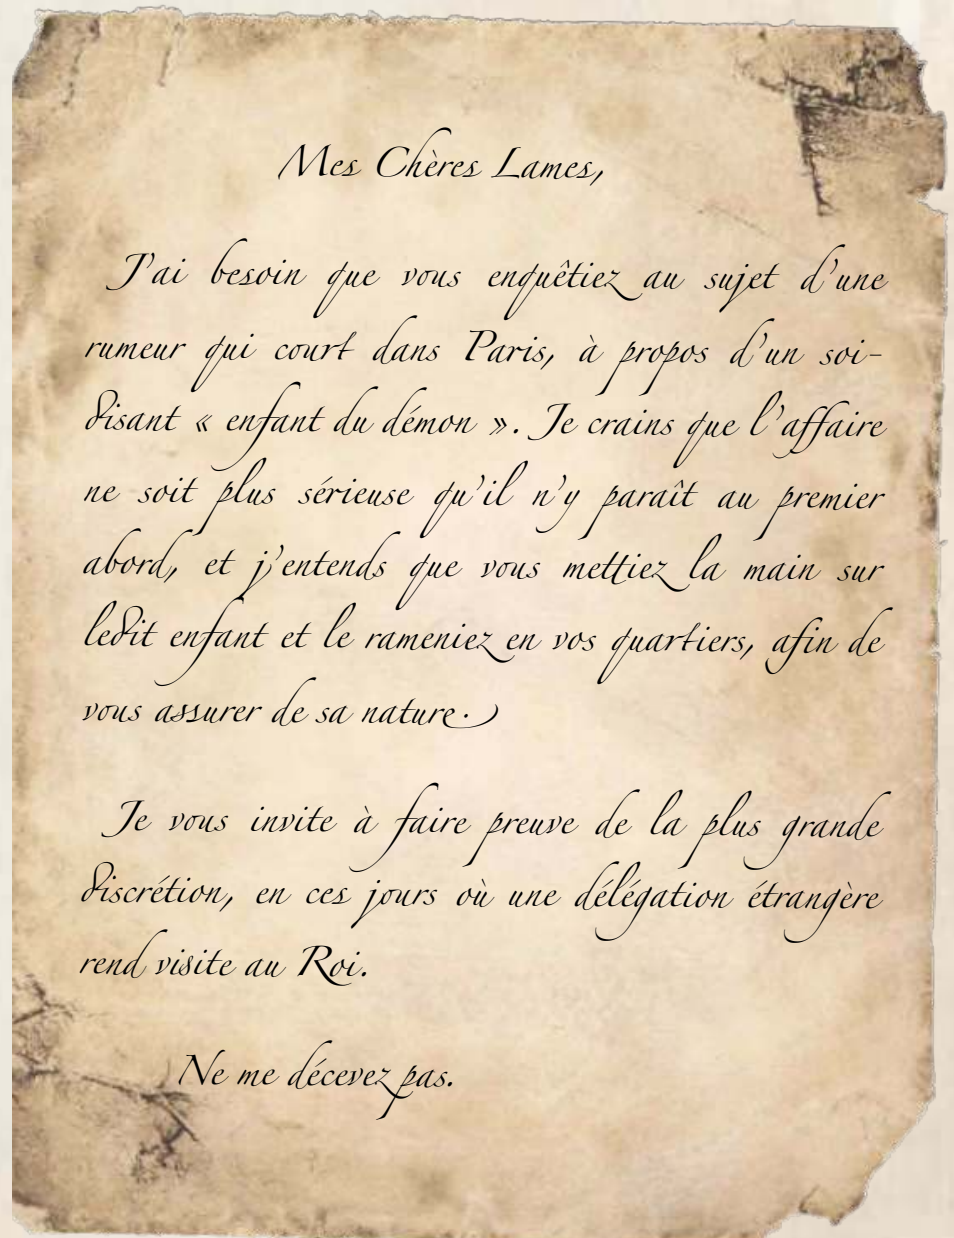 Mes Chères Lames,
J'ai besoin que vous enquêtiez au sujet d'une
rumeur qui court dans Paris, à propos d'un soi-
disant « enfant du démon ». Je crains que l'affaire
ne soit plus sérieuse qu'il n'y paraît au premier
abord, et j'entends que vous mettiez la main sur
ledit enfant et le rameniez en vos quartiers, afin de
vous assurer de sa nature.
Je vous invite à faire preuve de la plus grande
discrétion, en ces jours où une délégation étrangère
rend visite au Roi.
Ne me décevez pas.